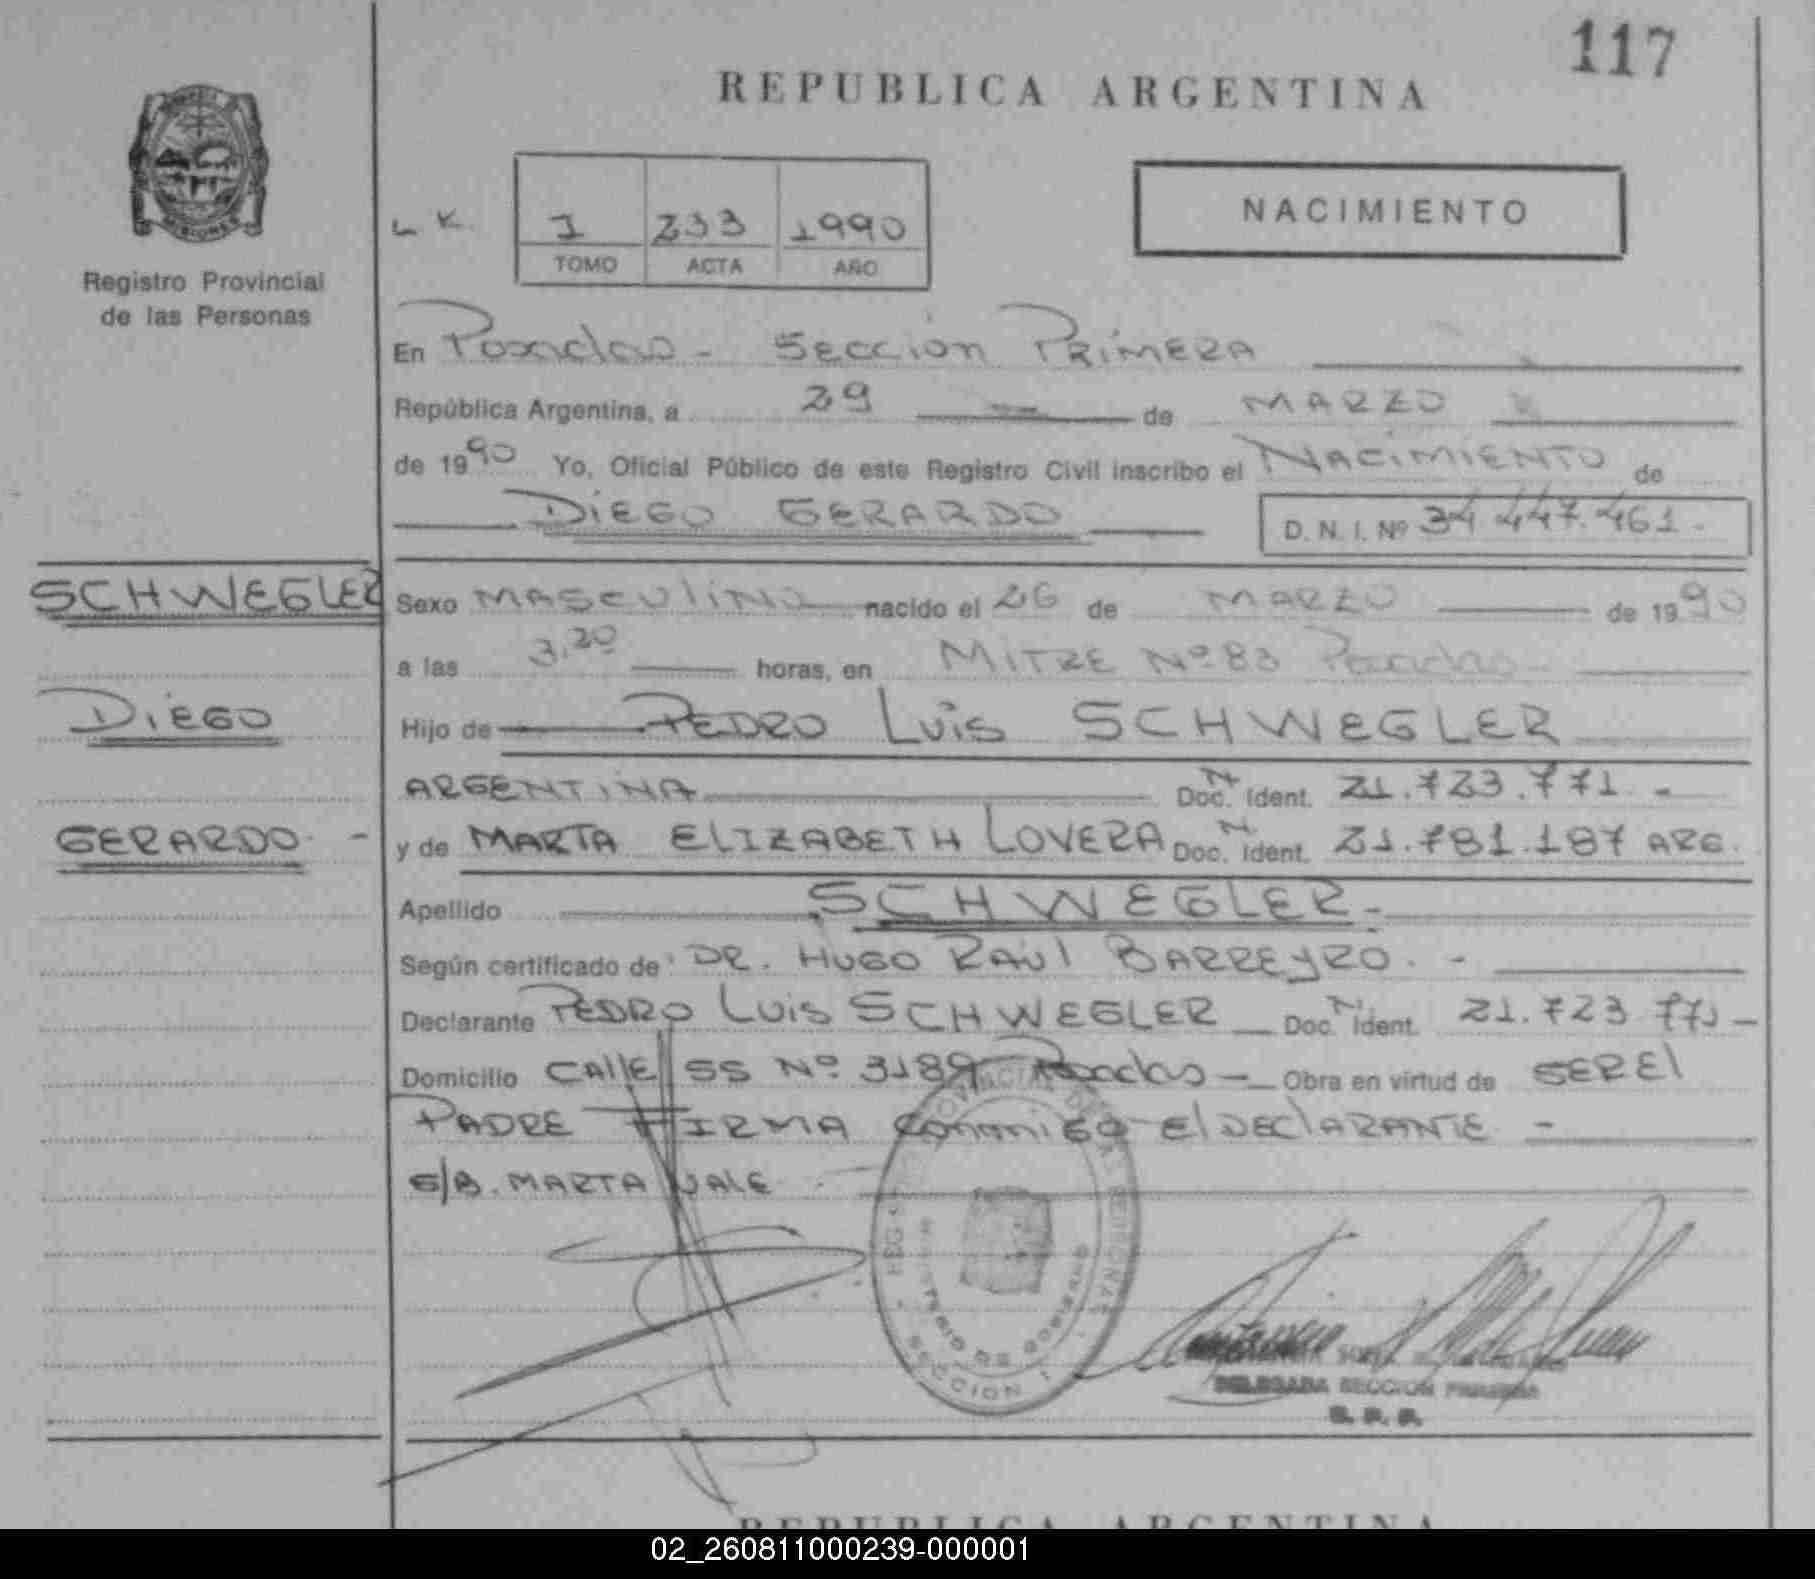 117
REPUBLICA ARGENTINA
MISIONES
Registro Provincial
de las Personas
L K.
I 233 1990
TOMO ACTA AÑO
NACIMIENTO
En Posadas - Sección Primera
República Argentina, a 29 de MARZO
de 1990 Yo, Oficial Público de este Registro Civil inscribo el NACIMIENTO de
DIEGO GERARDO
D. N. I. Nº 34 447.461.-
SCHWEGLER
Sexo MASCULINO nacido el 26 de MARZO de 1990
a las 3,20 horas, en MITRE Nº 83 Posadas
DIEGO
Hijo de PEDRO LUIS SCHWEGLER
ARGENTINA Doc. N Ident. 21.723.771.-
GERARDO. -
y de MARTA ELIZABETH LOVERA Doc. N Ident. 21.781.187 ARG.
Apellido SCHWEGLER-
Según certificado de DR. HUGO RAUL BARREYRO. -
Declarante PEDRO LUIS SCHWEGLER Doc. N Ident. 21.723 771-
Domicilio CALLE SS Nº 3189 Posadas - Obra en virtud de SER El
PADRE FIRMA Conmigo El DECLARANTE -
S/B. MARTA VALE
MINISTERIO DE GOBIERNO
SECCION 1
DELEGADA SECCION PRIMERA
R. P. P.
REPUBLICA ARGENTINA
02_260811000239-000001